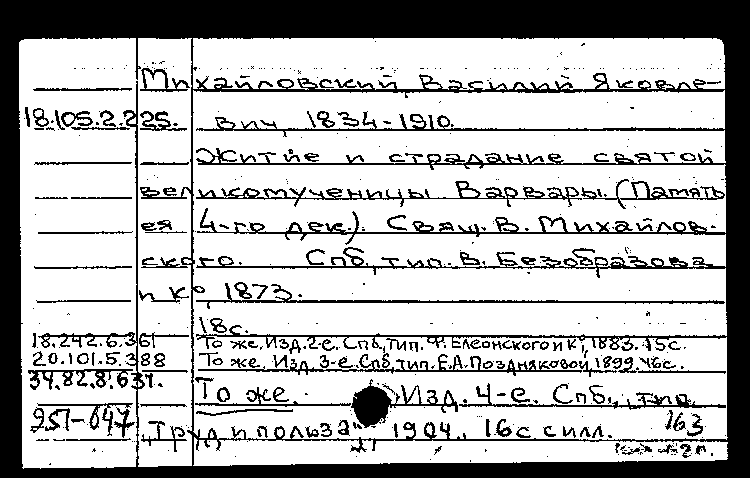 Михайловский, Василий Яковле-
18.105.2.225. вич, 1834-1910.
Житие и страдание святой
великомученицы Варвары. (Память
ея 4-го дек.). Свящ. В. Михайлов-
ского. Спб., тип. В. Безобразова
и К°, 1873.
18с.
18.242.6.361 То же. Изд. 2-е. Спб., тип. Ф. Елеонского и К°, 1883. 15с.
20.101.5.388 То же. Изд. 3-е. Спб., тип. Е.А. Поздняковой, 1899. 46с.
34.82.8.631. То же. Изд. 4-е. Спб., тип.
251-647 „Труд и польза", 1904. 16с с илл. 163